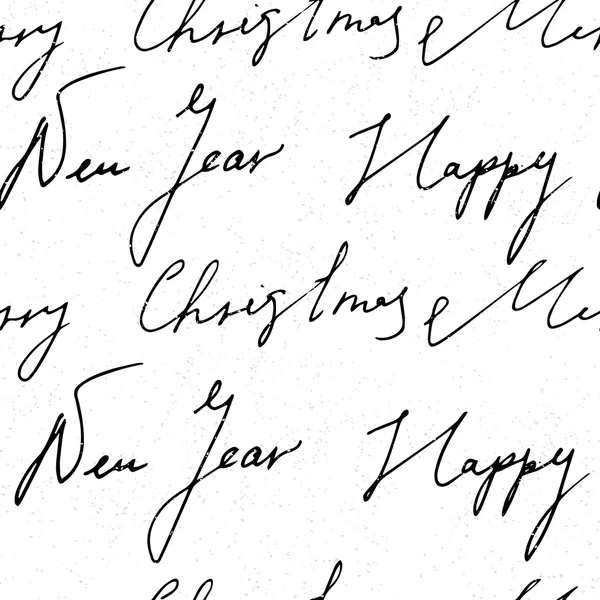 rry Christmas Me
New Year Happy
rry Christmas Me
New Year Happy